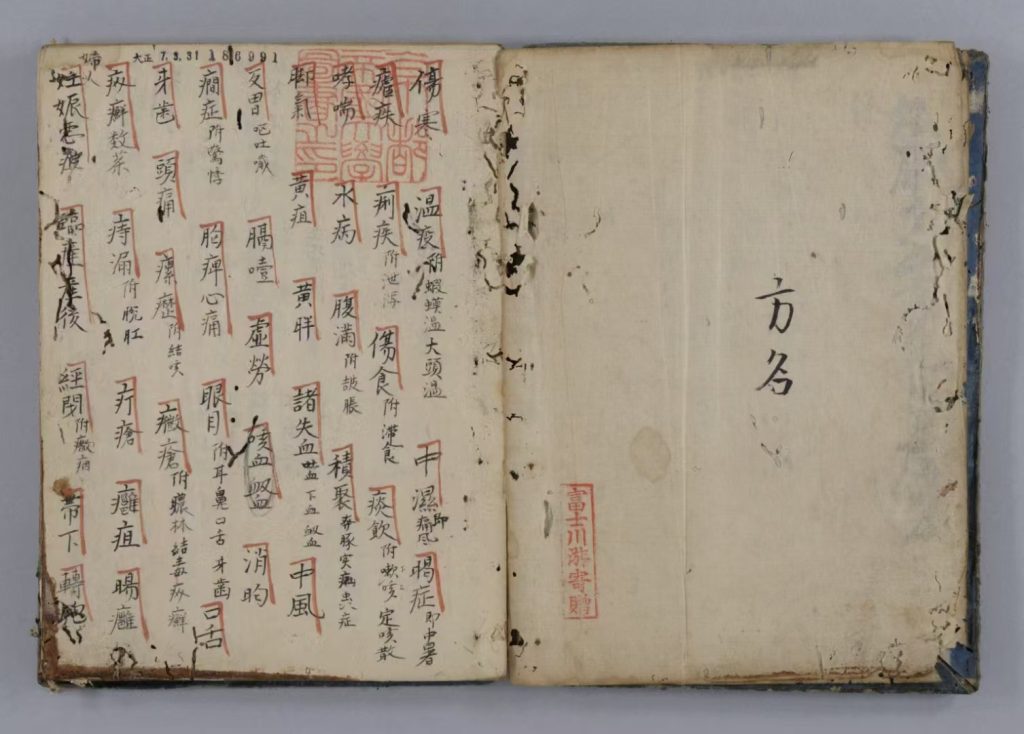 方名
富士川游寄贈
大正 7.3.31
186991
傷寒 温疫 附 蝦蟆温 大頭温 中濕 即痛風 暍症 即中暑
瘧疾 痢疾 附泄瀉 傷食 附滞食 痰飲 附嗽咳 定咳散
哮喘 水病 腹滿 附鼓脹 積聚 奔豚
脚氣 黄疸 黄胖 諸失血 下血 衂血 中風
反胃 嘔吐 膈噎 虚勞 咳血 消
癇症 附驚悸 胸痺心痛 眼目 附耳鼻口舌 牙齒 口舌
牙歯 頭痛 瘰癧 附結 黴瘡 附 淋 結毒 疥癬
疥癬数 痔漏 附脱肛 疔瘡 癰疽 腸癰
婦人
妊娠 臨産産後 經閉 附 帯下 轉胞